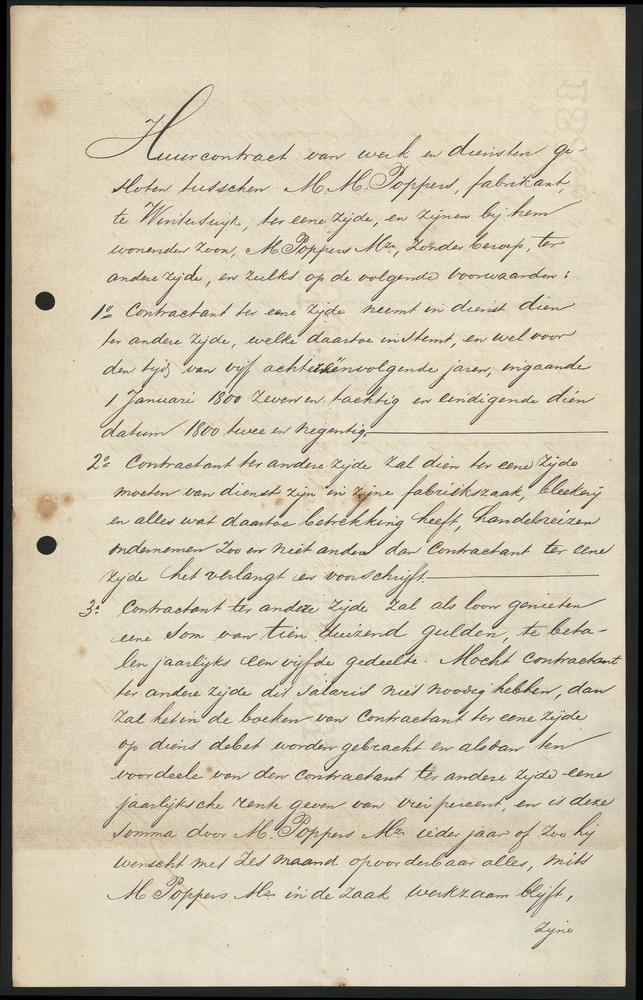 Huurcontract van werk en diensten ge-
sloten tusschen M. M. Poppers, fabrikant,
te Winterswijk, ter eene zijde, en zijnen bij hem
wonenden zoon, M Poppers Mzn, zonder beroep, ter
andere zijde, en zulks op de volgende voorwaarden:
1º Contractant ter eene zijde neemt in dienst dien
ter andere zijde, welke daartoe instemt, en wel voor
den tijd van vijf achtereenvolgende jaren, ingaande
1 Januari 1800 zeven en tachtig en eindigende dien
datum 1800 twee en negentig.
2º Contractant ter andere zijde zal dien ter eene zijde
moeten van dienst zijn in zijne fabriekszaak, bleekerij
en alles wat daartoe betrekking heeft, handelsreizen
ondernemen zoo en niet anders dan Contractant ter eene
zijde het verlangt en voorschrijft.
3º Contractant ter andere zijde zal als loon genieten
eene som van tien duizend gulden, te beta-
len jaarlijks een vijfde gedeelte. Mocht contractant
ter andere zijde dit salaris niet noodig hebben, dan
zal het in de boeken van Contractant ter eene zijde
op diens debet worden gebracht en alsdan ten
voordeele van den contractant ter andere zijde eene
jaarlijksche rente geven van vier percent, en is deze
somma door M. Poppers Mzn ieder jaar of zoo hij
wenscht met zes maand opvorderbaar alles, mits
M Poppers Mzn in de zaak werkzaam blijft,
zijne